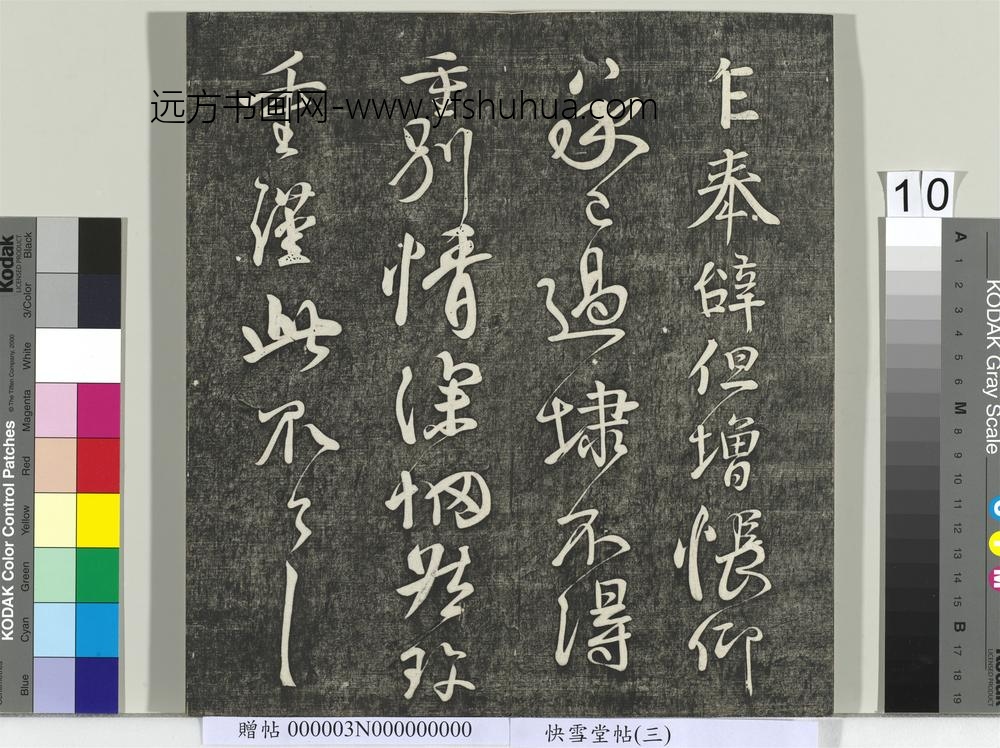 远方书画网-www.yfshuhua.com
乍奉辭但增悵仰
承已過埭不得
重別情深惘然珍
重謹此不
10
Kodak
LICENSED PRODUCT
KODAK Color Control Patches
© The Tiffen Company, 2000
Blue Cyan Green Yellow Red Magenta White 3/Color Black
KODAK Gray Scale
A 1 2 3 4 5 6 M 8 9 10 11 12 13 14 15 B 17 18 19
贈帖 000003N000000000
快雪堂帖(三)